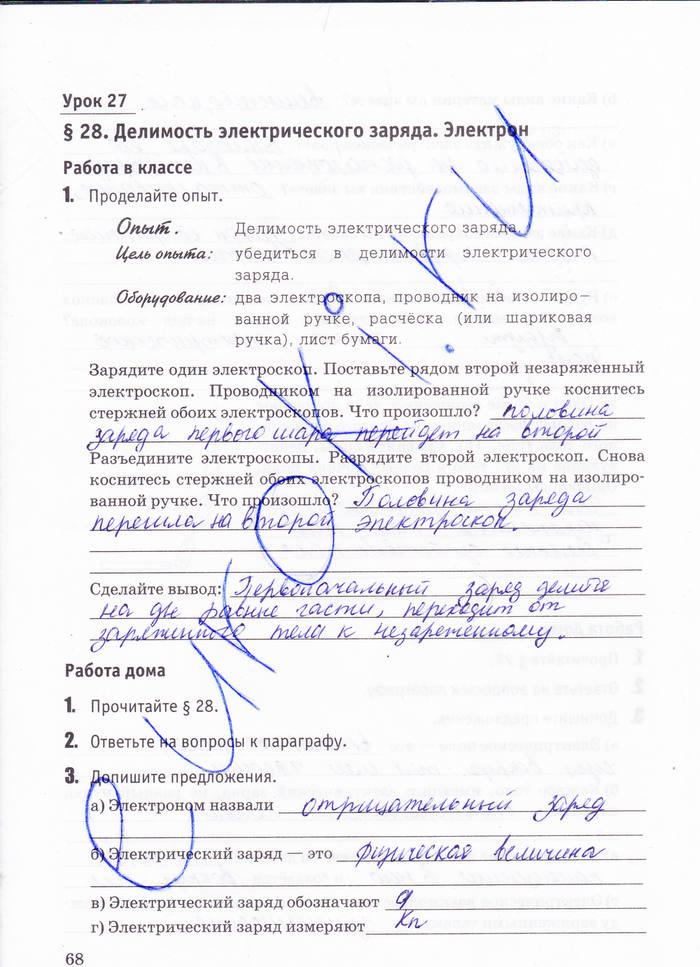 Урок 27
§ 28. Делимость электрического заряда. Электрон
Работа в классе
1. Проделайте опыт.
Опыт. Делимость электрического заряда.
Цель опыта: убедиться в делимости электрического
заряда.
Оборудование: два электроскопа, проводник на изолиро-
ванной ручке, расчёска (или шариковая
ручка), лист бумаги.
Зарядите один электроскоп. Поставьте рядом второй незаряженный
электроскоп. Проводником на изолированной ручке коснитесь
стержней обоих электроскопов. Что произошло? половина
заряда первого шара перейдет на второй
Разъедините электроскопы. Разрядите второй электроскоп. Снова
коснитесь стержней обоих электроскопов проводником на изолиро-
ванной ручке. Что произошло? Половина заряда
перешла на второй электроскоп.
Сделайте вывод: Первоначальный заряд делится
на две равные части, переходит от
заряженного тела к незаряженному.
Работа дома
1. Прочитайте § 28.
2. Ответьте на вопросы к параграфу.
3. Допишите предложения.
а) Электроном назвали отрицательный заряд
б) Электрический заряд — это физическая величина
в) Электрический заряд обозначают q
г) Электрический заряд измеряют Кл
68